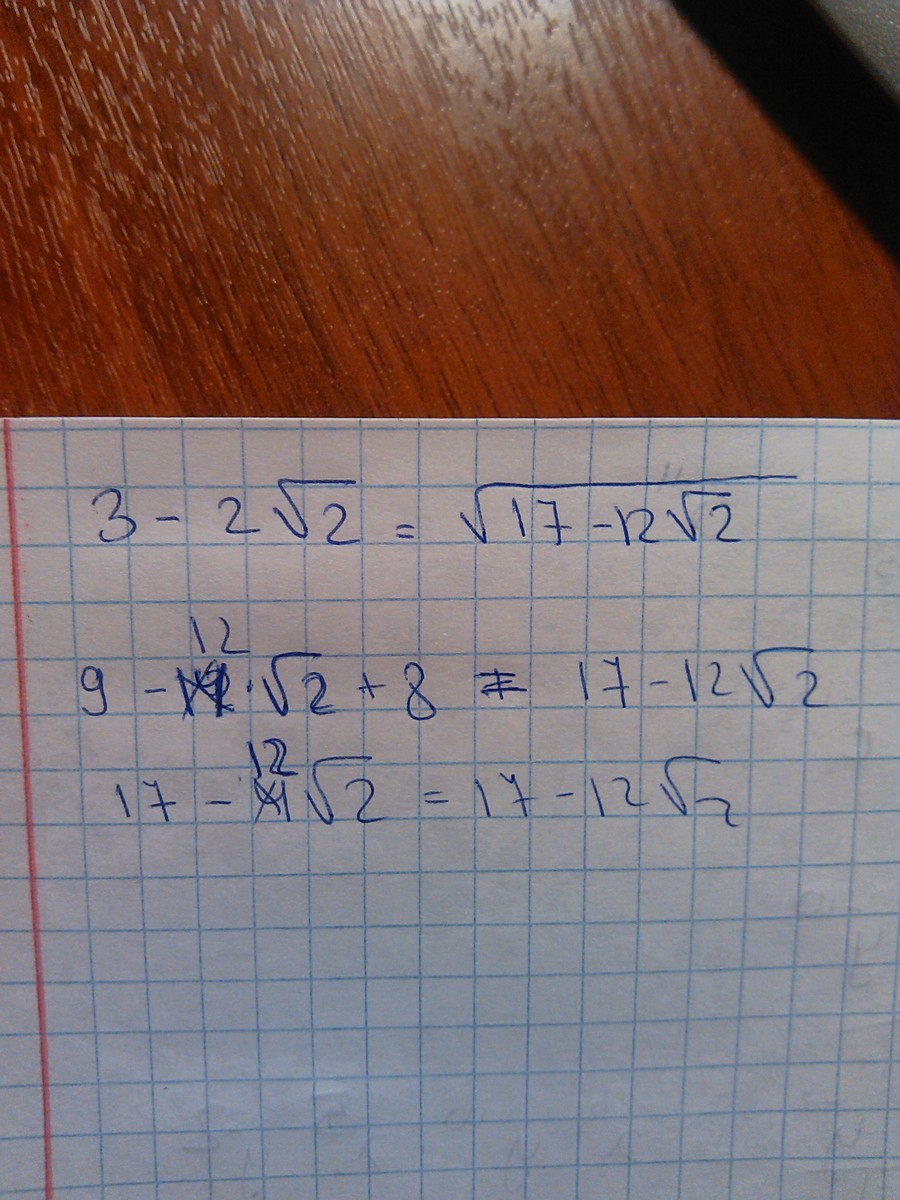 3 - 2√2 = √(17 - 12√2)
12
9 - · √2 + 8 = 17 - 12√2
12
17 - √2 = 17 - 12√2